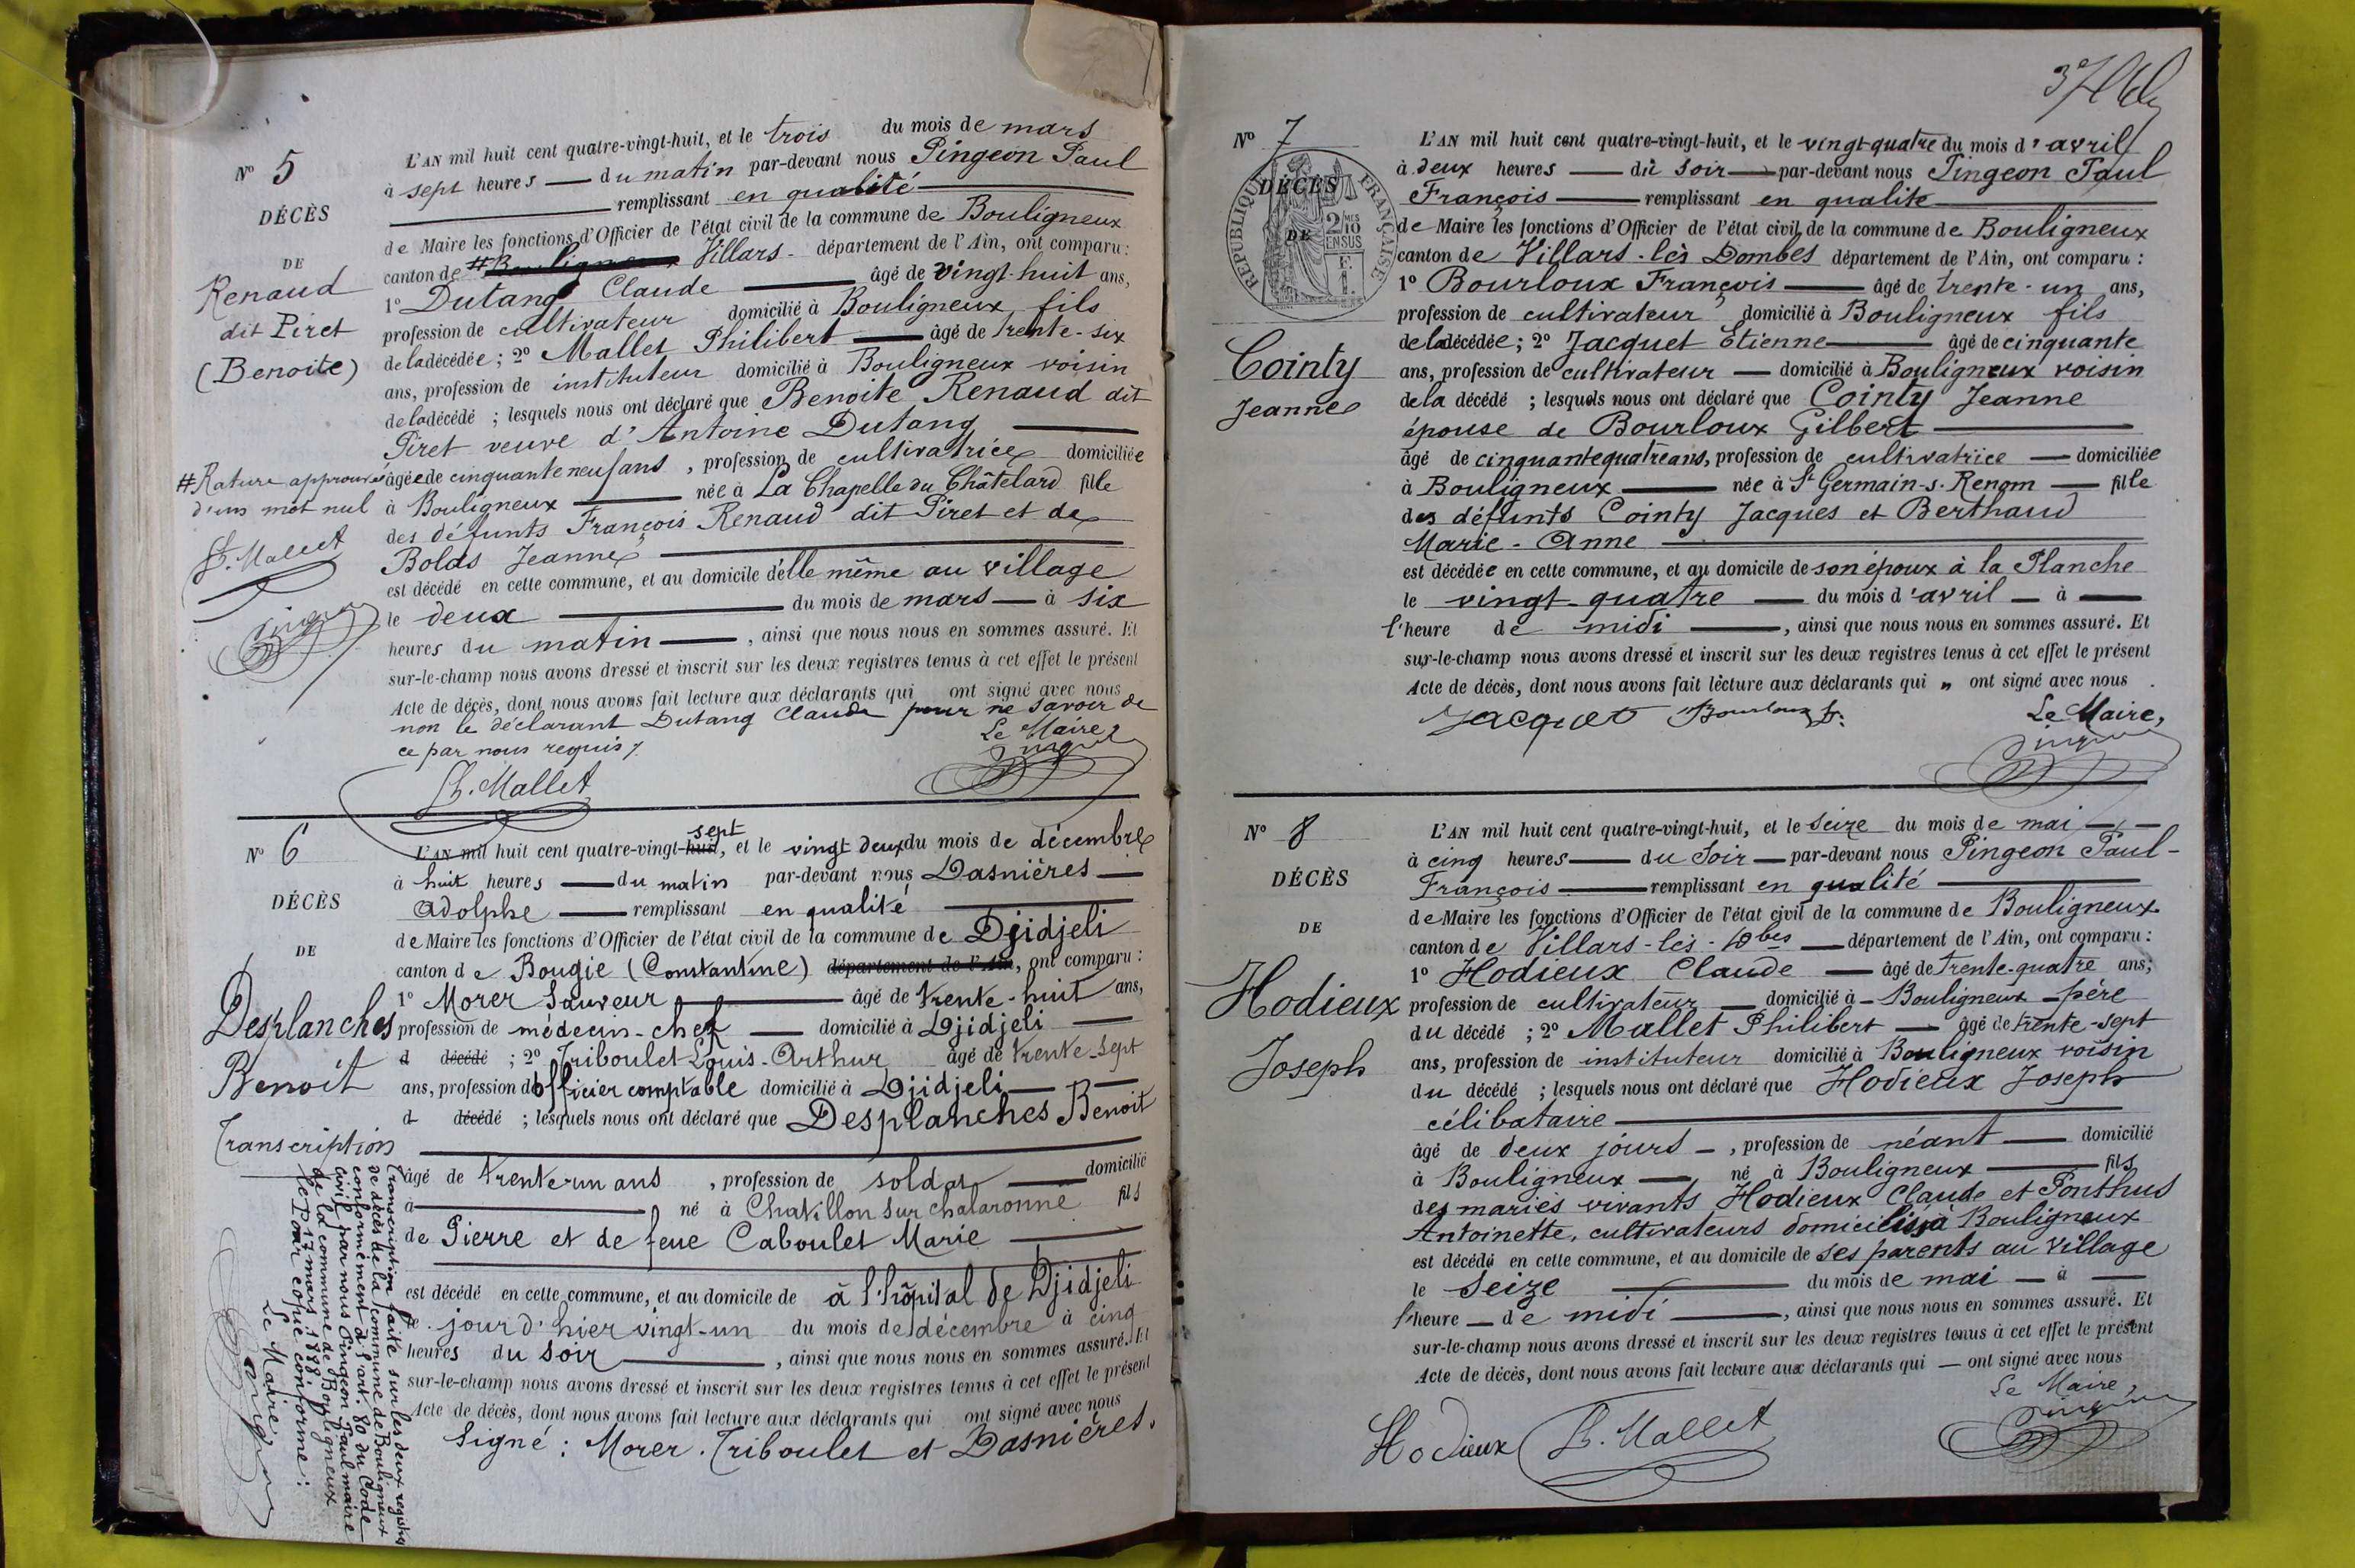 Nº 5
DÉCÈS
DE
Renaud
dit Piret
(Benoite)
#Rature approuvée
d'un mot nul
P. Mallet
L'AN mil huit cent quatre-vingt-huit, et le trois du mois de mars
à sept heures — du matin par-devant nous Pingeon Paul
remplissant en qualité
de Maire les fonctions d'Officier de l'état civil de la commune de Bouligneux
canton de # Bouligneux Villars - département de l'Ain, ont comparu :
1º Dutang Claude — âgé de vingt-huit ans,
profession de cultivateur domicilié à Bouligneux fils
de la décédée ; 2º Mallet Philibert — âgé de trente-six
ans, profession de instituteur domicilié à Bouligneux voisin
de la décédé ; lesquels nous ont déclaré que Benoite Renaud dit
Piret veuve d'Antoine Dutang
âgée de cinquante neuf ans, profession de cultivatrice domiciliée
à Bouligneux — née à La Chapelle du Châtelard fille
des défunts François Renaud dit Piret et de
Bolas Jeanne
est décédé en cette commune, et au domicile d'elle même au village
le deux — du mois de mars — à six
heures du matin —, ainsi que nous nous en sommes assuré. Et
sur-le-champ nous avons dressé et inscrit sur les deux registres tenus à cet effet le présent
Acte de décès, dont nous avons fait lecture aux déclarants qui ont signé avec nous
non le déclarant Dutang Claude pour ne savoir de
ce par nous requis /.
Le Maire,
Ph. Mallet
Nº 6
DÉCÈS
DE
Desplanches
Benoit
Transcription
Transcription faite sur les deux registres
de décès de la commune de Bouligneux
conformément à l'art. 80 du Code
civil par nous Pingeon Paul maire
de la commune de Bouligneux
le 17 mars 1888.
Pour copie conforme :
Le Maire,
Pingeon
sept
L'AN mil huit cent quatre-vingt-huit, et le vingt deux du mois de décembre
à huit heures — du matin par-devant nous Dasnières —
Adolphe — remplissant en qualité
de Maire les fonctions d'Officier de l'état civil de la commune de Djidjeli
canton de Bougie (Constantine) département de l'Ain, ont comparu :
1º Morer Sauveur — âgé de trente-huit ans,
profession de médecin-chef — domicilié à Djidjeli —
d décédé ; 2º Triboulet Louis-Arthur âgé de trente-sept
ans, profession d'officier comptable domicilié à Djidjeli —
d décédé ; lesquels nous ont déclaré que Desplanches Benoit
âgé de trente un ans, profession de soldat — domicilié
à — né à Chatillon sur chalaronne fils
de Pierre et de feue Caboulet Marie —
est décédé en cette commune, et au domicile de à l'hôpital de Djidjeli
le jour d'hier vingt-un du mois de décembre à cinq
heures du soir —, ainsi que nous nous en sommes assuré. Et
sur-le-champ nous avons dressé et inscrit sur les deux registres tenus à cet effet le présent
Acte de décès, dont nous avons fait lecture aux déclarants qui ont signé avec nous
Signé : Morer. Triboulet et Dasnières.
Nº 7
DÉCÈS
DE
RÉPUBLIQUE FRANÇAISE
2 MES
10
EN SUS
Cointy
Jeanne
L'AN mil huit cent quatre-vingt-huit, et le vingt-quatre du mois d'avril
à deux heures — du soir — par-devant nous Pingeon Paul
François — remplissant en qualité
de Maire les fonctions d'Officier de l'état civil de la commune de Bouligneux
canton de Villars-lès Dombes département de l'Ain, ont comparu :
1º Bourloux François — âgé de trente-un ans,
profession de cultivateur domicilié à Bouligneux fils
de la décédée ; 2º Jacquet Etienne — âgé de cinquante
ans, profession de cultivateur — domicilié à Bouligneux voisin
de la décédé ; lesquels nous ont déclaré que Cointy Jeanne
épouse de Bourloux Gilbert —
âgé de cinquante quatre ans, profession de cultivatrice — domiciliée
à Bouligneux — née à St Germain-s-Renom — fille
des défunts Cointy Jacques et Berthaud
Marie-Anne —
est décédée en cette commune, et au domicile de son époux à la Planche
le vingt-quatre — du mois d'avril — à —
l'heure de midi —, ainsi que nous nous en sommes assuré. Et
sur-le-champ nous avons dressé et inscrit sur les deux registres tenus à cet effet le présent
Acte de décès, dont nous avons fait lecture aux déclarants qui „ ont signé avec nous
Jacquet Bourloux fr. Le Maire,
Nº 8
DÉCÈS
DE
Hodieux
Joseph
L'AN mil huit cent quatre-vingt-huit, et le seize du mois de mai —
à cinq heures — du soir — par-devant nous Pingeon Paul-
François — remplissant en qualité —
de Maire les fonctions d'Officier de l'état civil de la commune de Bouligneux
canton de Villars-lès-Dbes — département de l'Ain, ont comparu :
1º Hodieux Claude — âgé de trente-quatre ans,
profession de cultivateur — domicilié à - Bouligneux - père
du décédé ; 2º Mallet Philibert — âgé de trente-sept
ans, profession de instituteur domicilié à Bouligneux voisin
du décédé ; lesquels nous ont déclaré que Hodieux Joseph
célibataire —
âgé de deux jours -, profession de néant — domicilié
à Bouligneux — né à Bouligneux — fils
des mariés vivants Hodieux Claude et Ponthus
Antoinette, cultivateurs domiciliés à Bouligneux
est décédé en cette commune, et au domicile de ses parents au village
le seize — du mois de mai — à —
l'heure — de midi —, ainsi que nous nous en sommes assuré. Et
sur-le-champ nous avons dressé et inscrit sur les deux registres tenus à cet effet le présent
Acte de décès, dont nous avons fait lecture aux déclarants qui — ont signé avec nous
Le Maire,
Hodieux P. Mallet